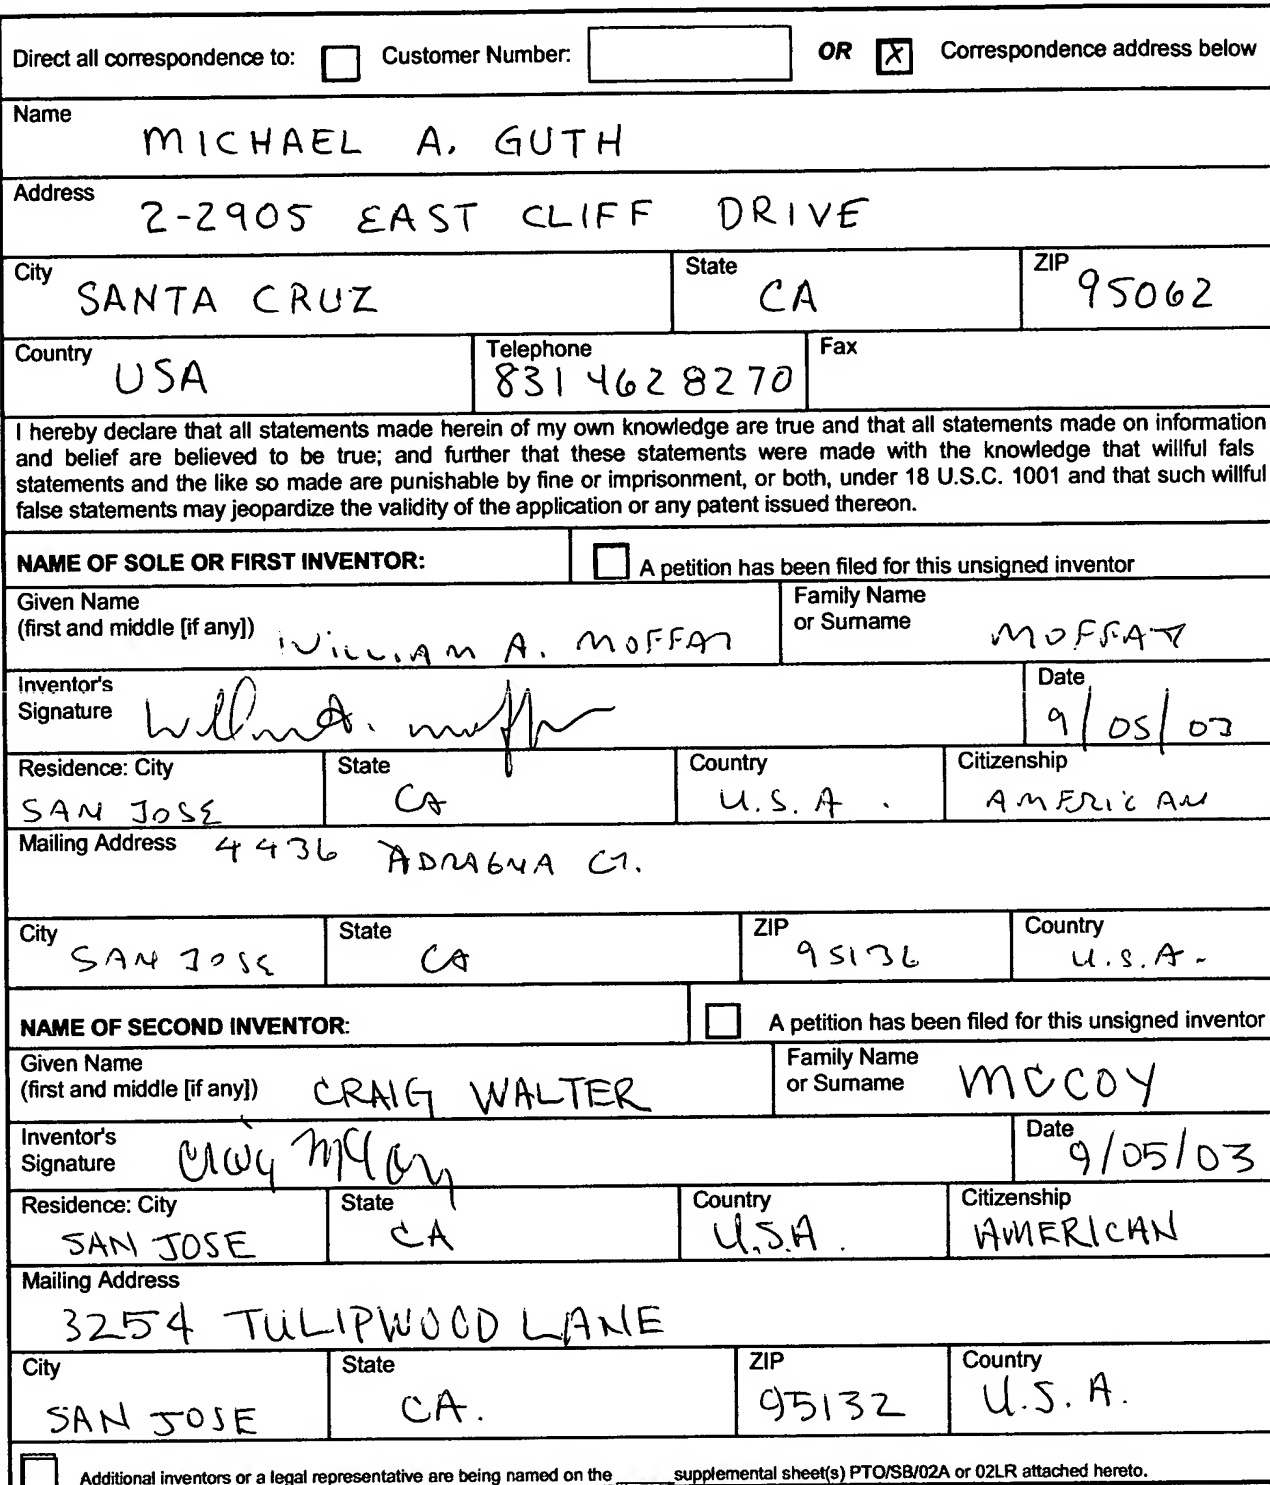 Direct all correspondence to: Customer Number: OR X Correspondence address below
Name
MICHAEL A. GUTH
Address
2-2905 EAST CLIFF DRIVE
City State ZIP
SANTA CRUZ CA 95062
Country Telephone Fax
USA 831 462 8270
I hereby declare that all statements made herein of my own knowledge are true and that all statements made on information
and belief are believed to be true; and further that these statements were made with the knowledge that willful fals
statements and the like so made are punishable by fine or imprisonment, or both, under 18 U.S.C. 1001 and that such willful
false statements may jeopardize the validity of the application or any patent issued thereon.
NAME OF SOLE OR FIRST INVENTOR: A petition has been filed for this unsigned inventor
Given Name Family Name
(first and middle [if any]) WILLIAM A. MOFFAT or Surname MOFFAT
Inventor's Date
Signature William A. Moffat 9/05/03
Residence: City State Country Citizenship
SAN JOSE CA U.S.A. AMERICAN
Mailing Address 4436 ADRAGNA CT.
City State ZIP Country
SAN JOSE CA 95136 U.S.A.
NAME OF SECOND INVENTOR: A petition has been filed for this unsigned inventor
Given Name Family Name
(first and middle [if any]) CRAIG WALTER or Surname MCCOY
Inventor's Date
Signature Craig McCoy 9/05/03
Residence: City State Country Citizenship
SAN JOSE CA U.S.A. AMERICAN
Mailing Address
3254 TULIPWOOD LANE
City State ZIP Country
SAN JOSE CA. 95132 U.S.A.
Additional inventors or a legal representative are being named on the ______supplemental sheet(s) PTO/SB/02A or 02LR attached hereto.